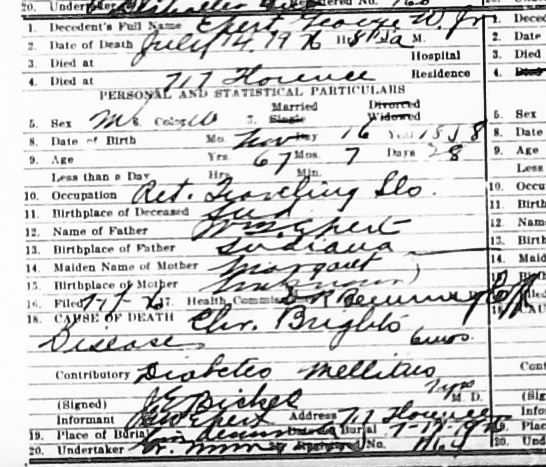 20. Undertaker
1. Decedent's Full Name Epert George W. Jr
2. Date of Death July 14, 19 Hr. a M.
3. Died at Hospital
4. Died at 717 Florence Residence
PERSONAL AND STATISTICAL PARTICULARS
5. Sex M 6. Color W 7. Married Single Divorced Widowed
8. Date of Birth Mo. Nov Day 16 Year 18 8
9. Age Yrs. 67 Mos. 7 Days 28
Less than a Day Hrs. Min.
10. Occupation Ret. Traveling
11. Birthplace of Deceased Ind
12. Name of Father Wm. Epert
13. Birthplace of Father Indiana
14. Maiden Name of Mother Margaret
15. Birthplace of Mother Unknown
16. Filed 17. Health Commis
18. CAUSE OF DEATH Chr. Brights
Disease 6 mos.
Contributory Diabetes Mellitus
(Signed) J E Bickel M. D.
Informant G W Epert Address 717 Florence
19. Place of Burial Date of Burial
20. Undertaker No.
1. Deced
2. Date
3. Died
4. Died
5. Sex
8. Date
9. Age
Less
10. Occu
11. Birth
12. Name
13. Birth
14. Maid
15. Birth
16. Filed
18. CAU
Cont
(Sign
Infor
19. Place
20. Und